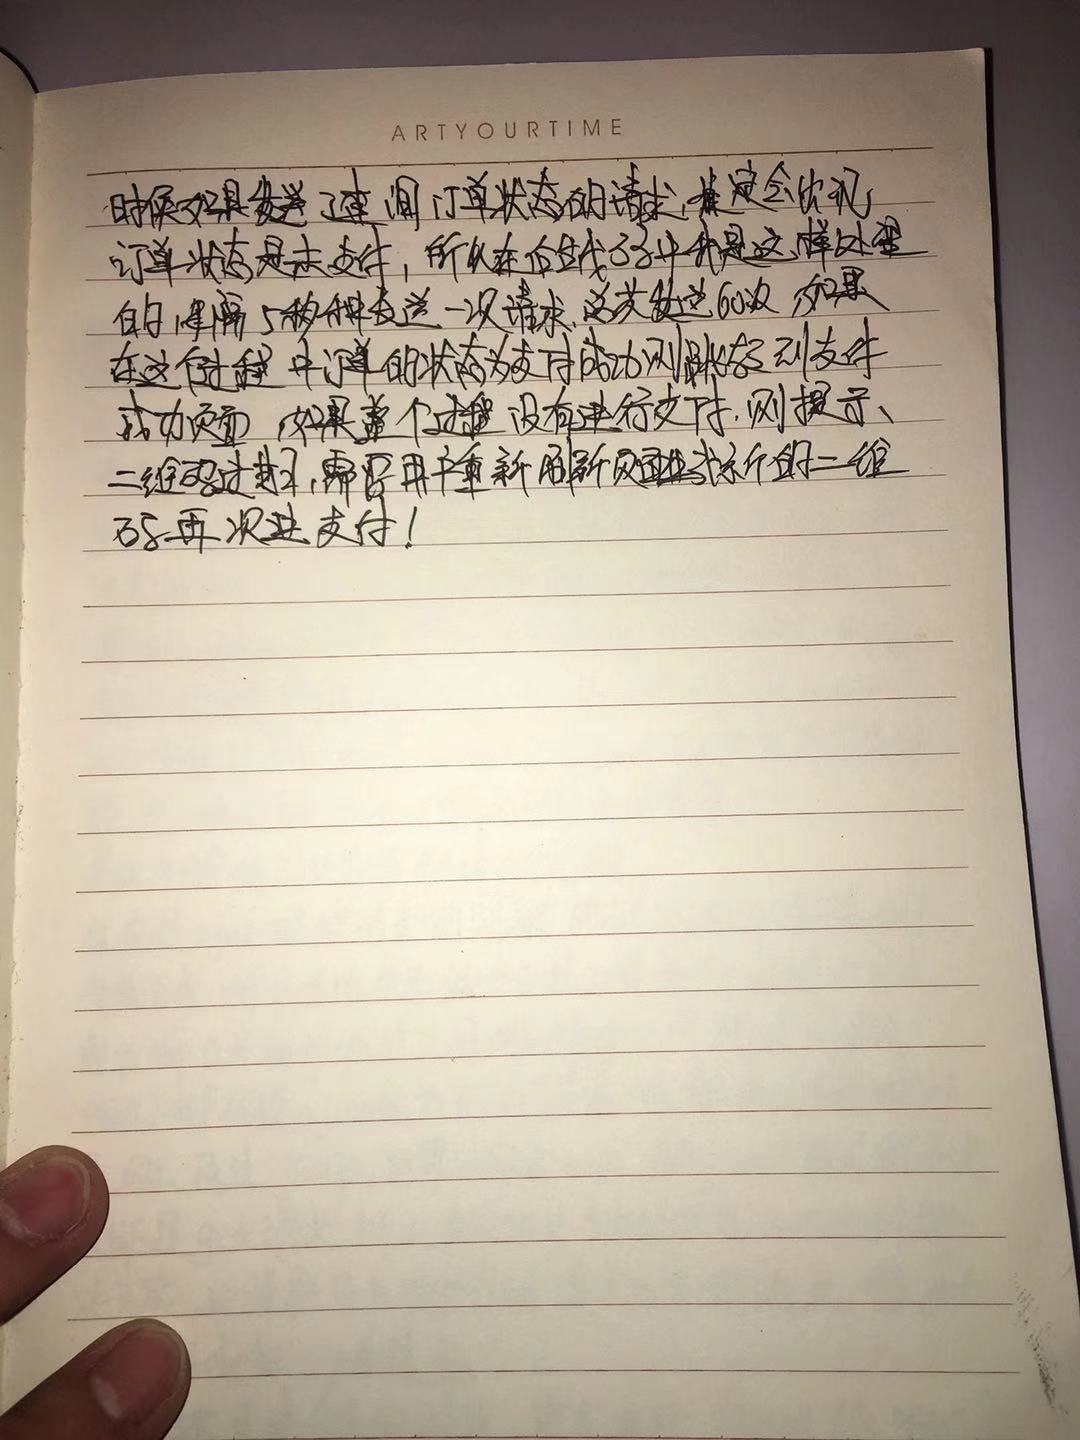 ARTYOURTIME
时候如果发送了查询订单状态的请求，肯定会出现
订单状态是未支付，所以在后台代码中我是这样处理
的，每隔5秒种发送一次请求，总共发送60次 如果
在这个过程中订单的状态为支付成功则跳转到支付
成功页面 如果整个过程没有进行支付，则提示
二维码过期，需要用户重新刷新页面生成新的二维
码再次进支付！